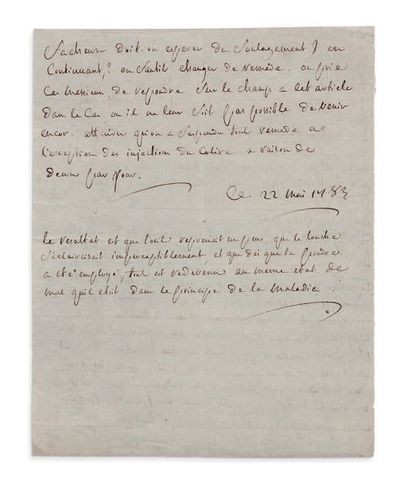 doit on esperer du Soulagement en
Continuant? ou faut il changer de Remede. on prie
Ces messieurs, de respondre sur le champ a cet article
dans le Cas ou il ne leur Soit pas possible de venir
encor. attendu qu'on a Suspendu tout remede a
l'exception des injections du Colire a raison de
deux par jour.
Ce 22 mai 1783
le resultat est que l'oeil reprenoit un peu, que le louche
S'eclaircissoit imperceptiblement et que des que la poudre
a ete employé, tout est redevenu au meme etat de
mal qu'il etoit dans le principe de la maladie.